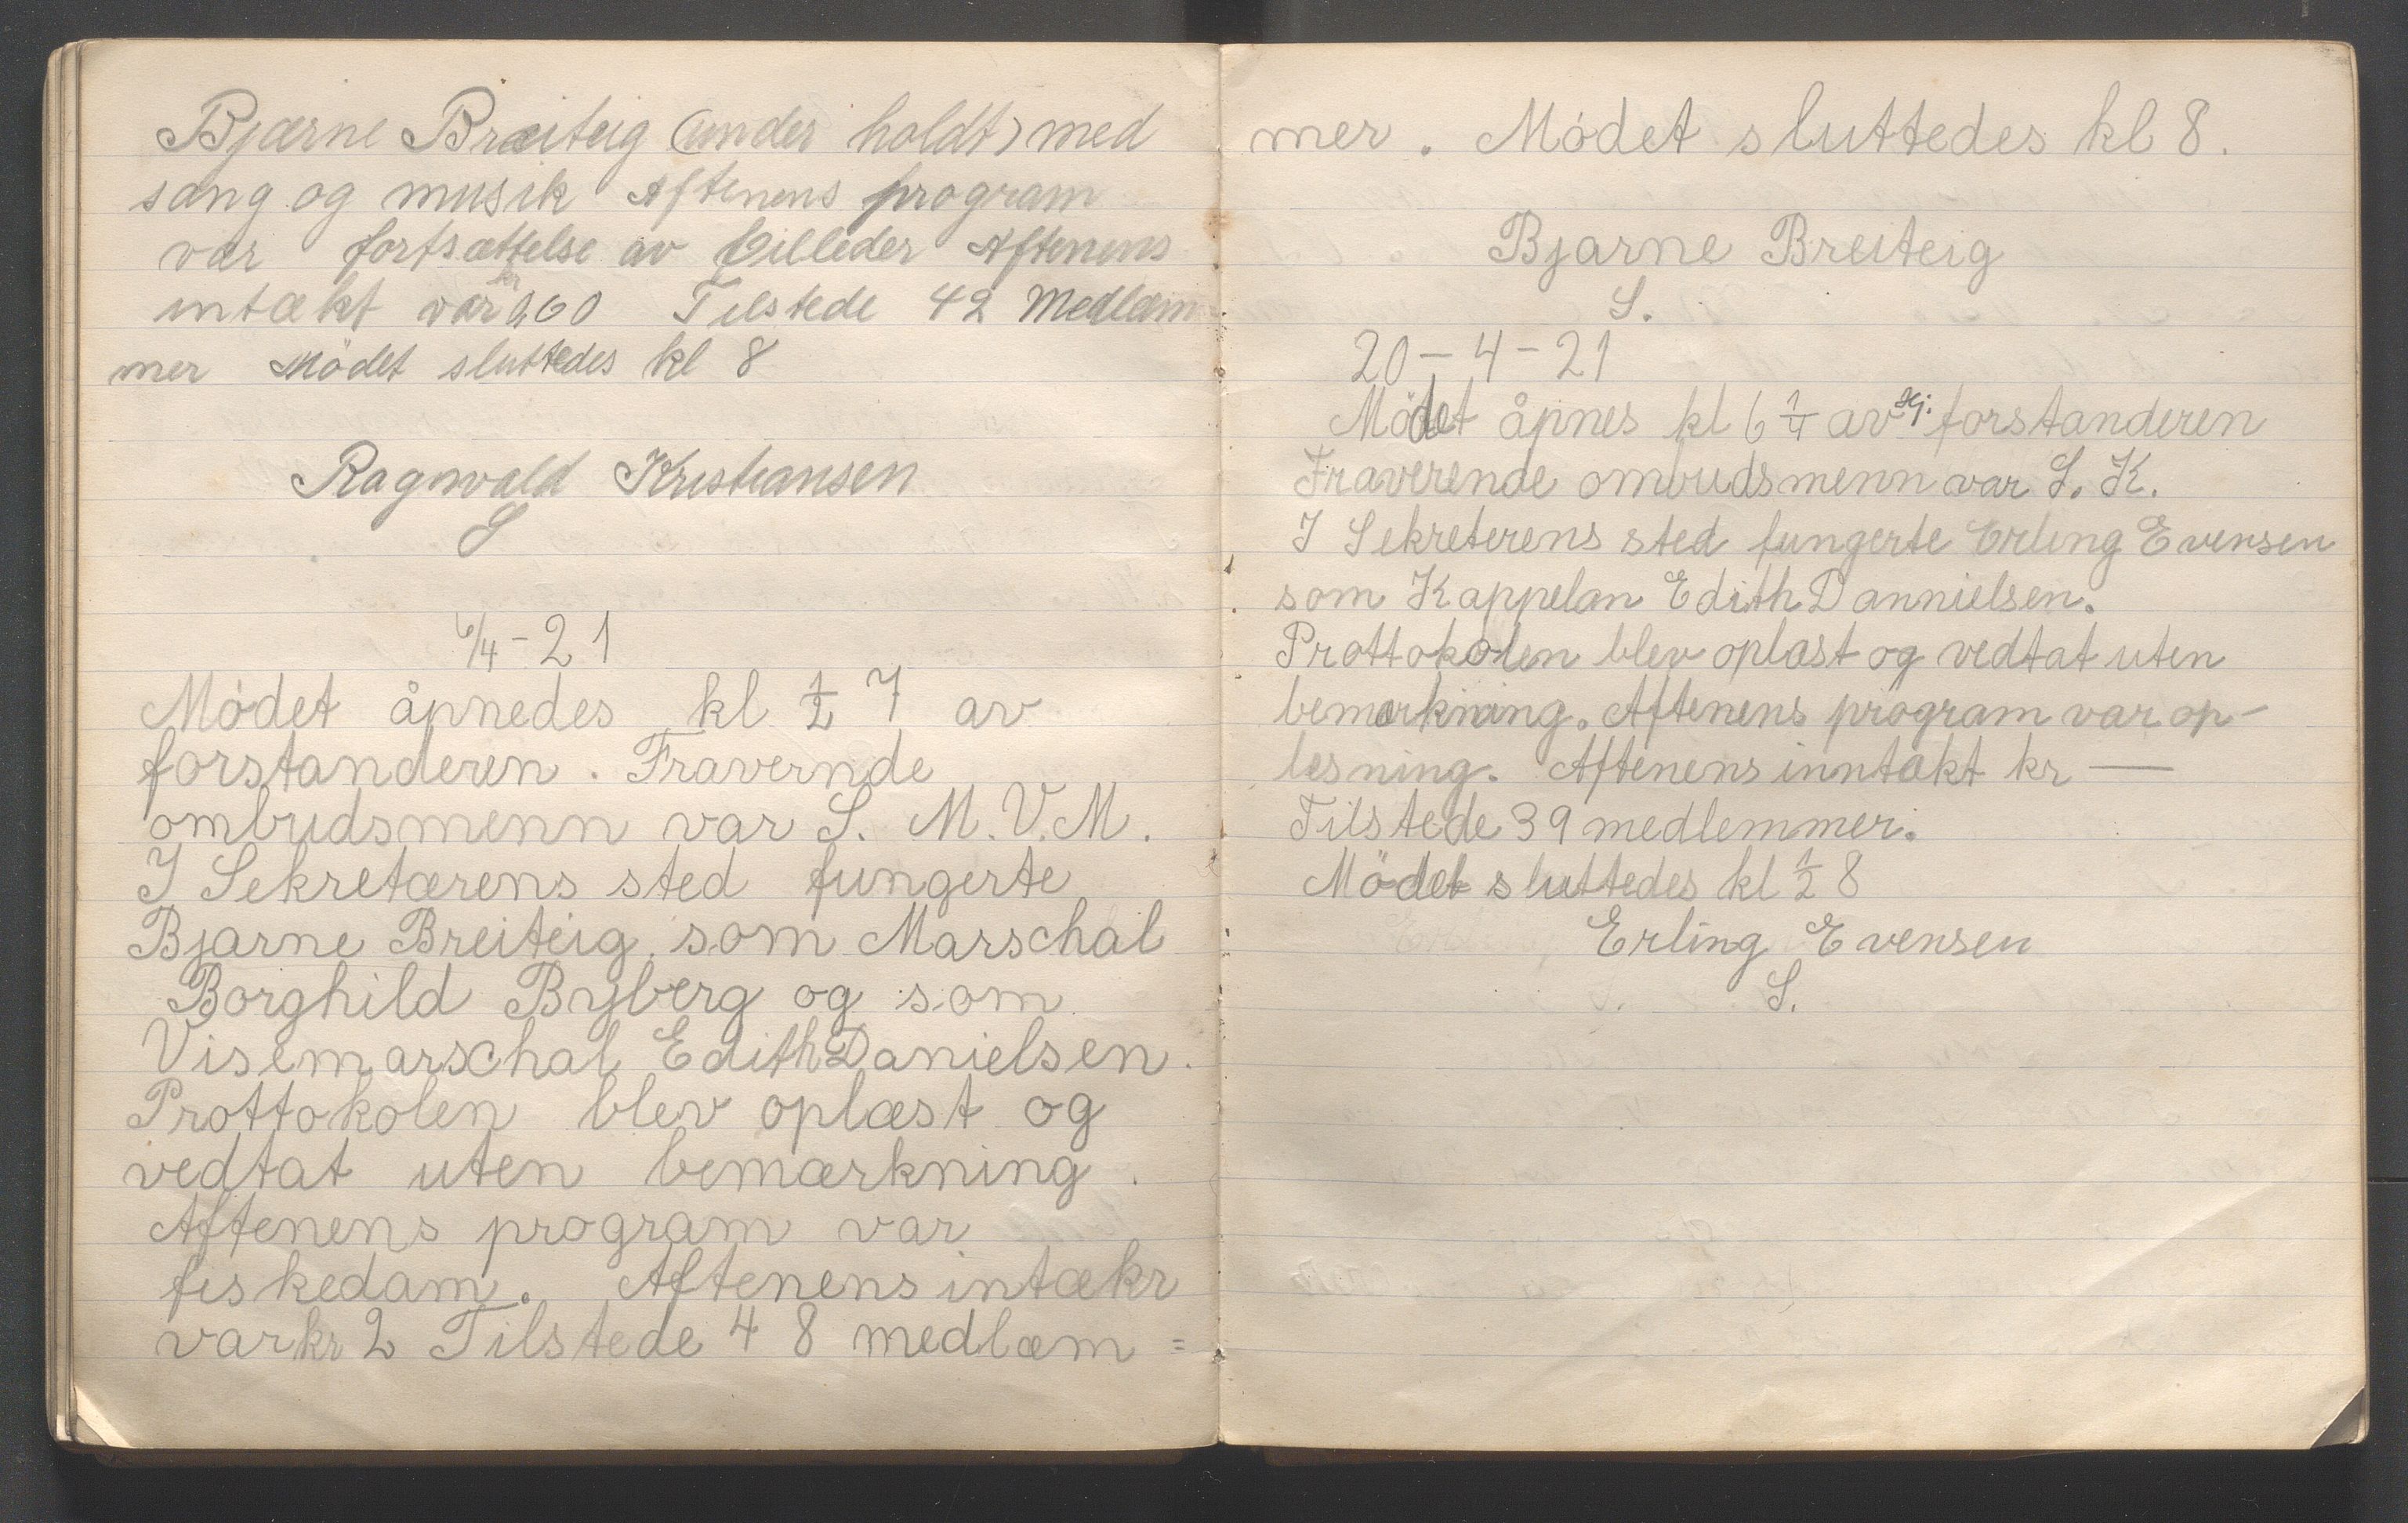 Bjærne Bræiteig (under holdt) med
sang og musik Aftenens program
var fortsættelse av billeder Aftenens
intækt var kr 0,60 Tilstede 42 Medlæm
mer Mödet sluttedes kl 8
Ragnvald Kristiansen
S
6/4-21
Mödet åpnedes kl ½ 7 av
forstanderen. Fravernde
ombudsmenn var S. M. V.M.
I Sekretærens sted fungerte
Bjarne Breiteig, som Marschal
Borghild Byberg og som
Visemarschal Edith Danielsen.
Prottokolen blev oplæst og
vedtat uten bemærkning.
Aftenens program var
fiskedam. Aftenens intækr
var kr 2 Tilstede 48 medlæm=
mer. Mödet sluttedes kl 8.
Bjarne Breiteig
S.
20-4-21
Mödet åpnes kl 6 ¼ av Hj. forstanderen
Fraverende ombudsmenn var S. K.
I Sekreterens sted fungerte Erling Evensen
som Kappelan Edith Dannielsen.
Prottokolen blev oplæst og vedtat uten
bemærkning. Aftenens program var op-
lesning. Aftenens inntækt kr —
Tilstede 39 medlemmer.
Mödet sluttedes kl ½ 8
Erling Evensen
S.